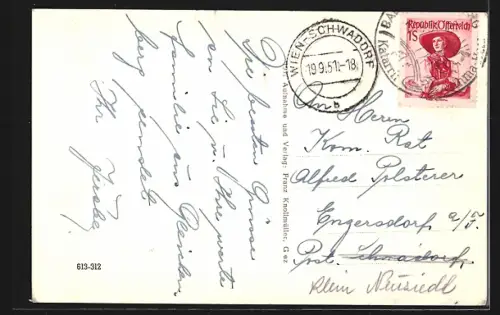 Die besten Grüsse
an Sie u. Ihre werte
Familie aus Gleichen-
berg sendet
Ihr
613-312
Aufnahme und Verlag: Franz Knollmüller, Graz
WIEN-SCHWADORF
19.9.51.-18
Republik Österreich
1S
An
Herrn
Kom. Rat
Alfred Polsterer
Engersdorf a/F.
Post. Schwadorf
Klein Neusiedl